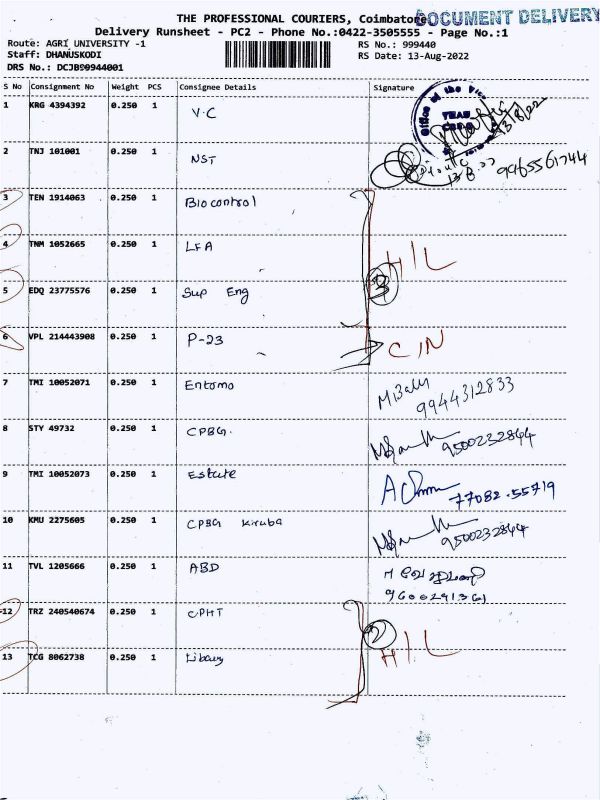 THE PROFESSIONAL COURIERS, Coimbatore
DOCUMENT DELIVERY
Delivery Runsheet - PC2 - Phone No.:0422-3505555 - Page No.:1
Route: AGRI UNIVERSITY -1
RS No.: 999440
Staff: DHANUSKODI
RS Date: 13-Aug-2022
DRS No.: DCJB99944001
S No Consignment No Weight PCS Consignee Details Signature
1 KRG 4394392 0.250 1 V.C
Office of the 13/8/22
2 TNJ 101001 0.250 1 NST 9965561744
3 TEN 1914063 0.250 1 Biocontrol
4 TNM 1052665 0.250 1 LFA H/L
5 EDQ 23775576 0.250 1 Sup Eng 3
6 VPL 214443908 0.250 1 P-23 C/N
7 TMI 10052071 0.250 1 Entomo 9944312833
8 STY 49732 0.250 1 CPBG. 9500232844
9 TMI 10052073 0.250 1 Estate 77082.55719
10 KMU 2275605 0.250 1 CPBG Kiruba 9500232844
11 TVL 1205666 0.250 1 ABD
9600291361
12 TRZ 240540674 0.250 1 CPHT 2
13 TCG 8062738 0.250 1 Library H/L